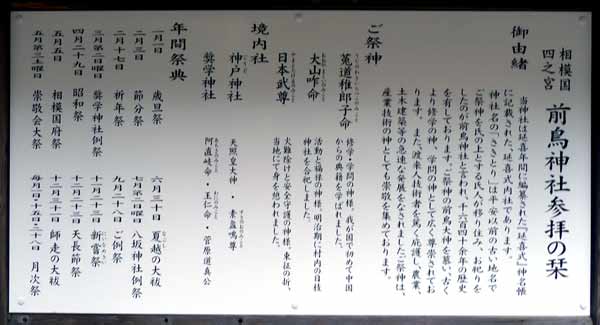 相模国
四之宮
前鳥神社参拝の栞
御由緒
当神社は延喜年間に編纂された『延喜式』神名帳
に記載された、延喜式内社であります。
神社名の「さきとり」は平安以前の古い地名で
ご祭神を氏の上とする氏人が移り住み、お祀りを
したのが前鳥神社と言われ、千六百四十余年の歴史
を有しております。ご祭神の前鳥大神を慕い、古く
より修学の神、学問の神として広く尊崇されてお
ります。また、渡来人技術者を篤く庇護し、農業、
土木建築等の急速な発展をなされましたご祭神は、
産業技術の神としても崇敬を集めております。
ご祭神
菟道稚郎子命
修学・学問の神様。我が国で初めて中国
からの典籍を学ばれました。
大山咋命
活動と福禄の神様。明治期に村内の日枝
神社を合祀しました。
日本武尊
火難除けと安全守護の神様。東征の折、
当地にて身を憩われました。
境内社
神戸神社
天照皇大神・素盞嗚尊
奨学神社
阿直岐命・王仁命・菅原道真公
年間祭典
一月一日 歳旦祭
二月三日 節分祭
二月十七日 祈年祭
三月第二日曜日 奨学神社例祭
四月二十九日 昭和祭
五月五日 相模国府祭
五月第三土曜日 崇敬会大祭
六月三十日 夏越の大祓
七月第二日曜日 八坂神社例祭
九月二十八日 ご例祭
十一月二十三日 新嘗祭
十二月二十三日 天長節祭
十二月三十一日 師走の大祓
毎月一日・十五日・二十八日 月次祭